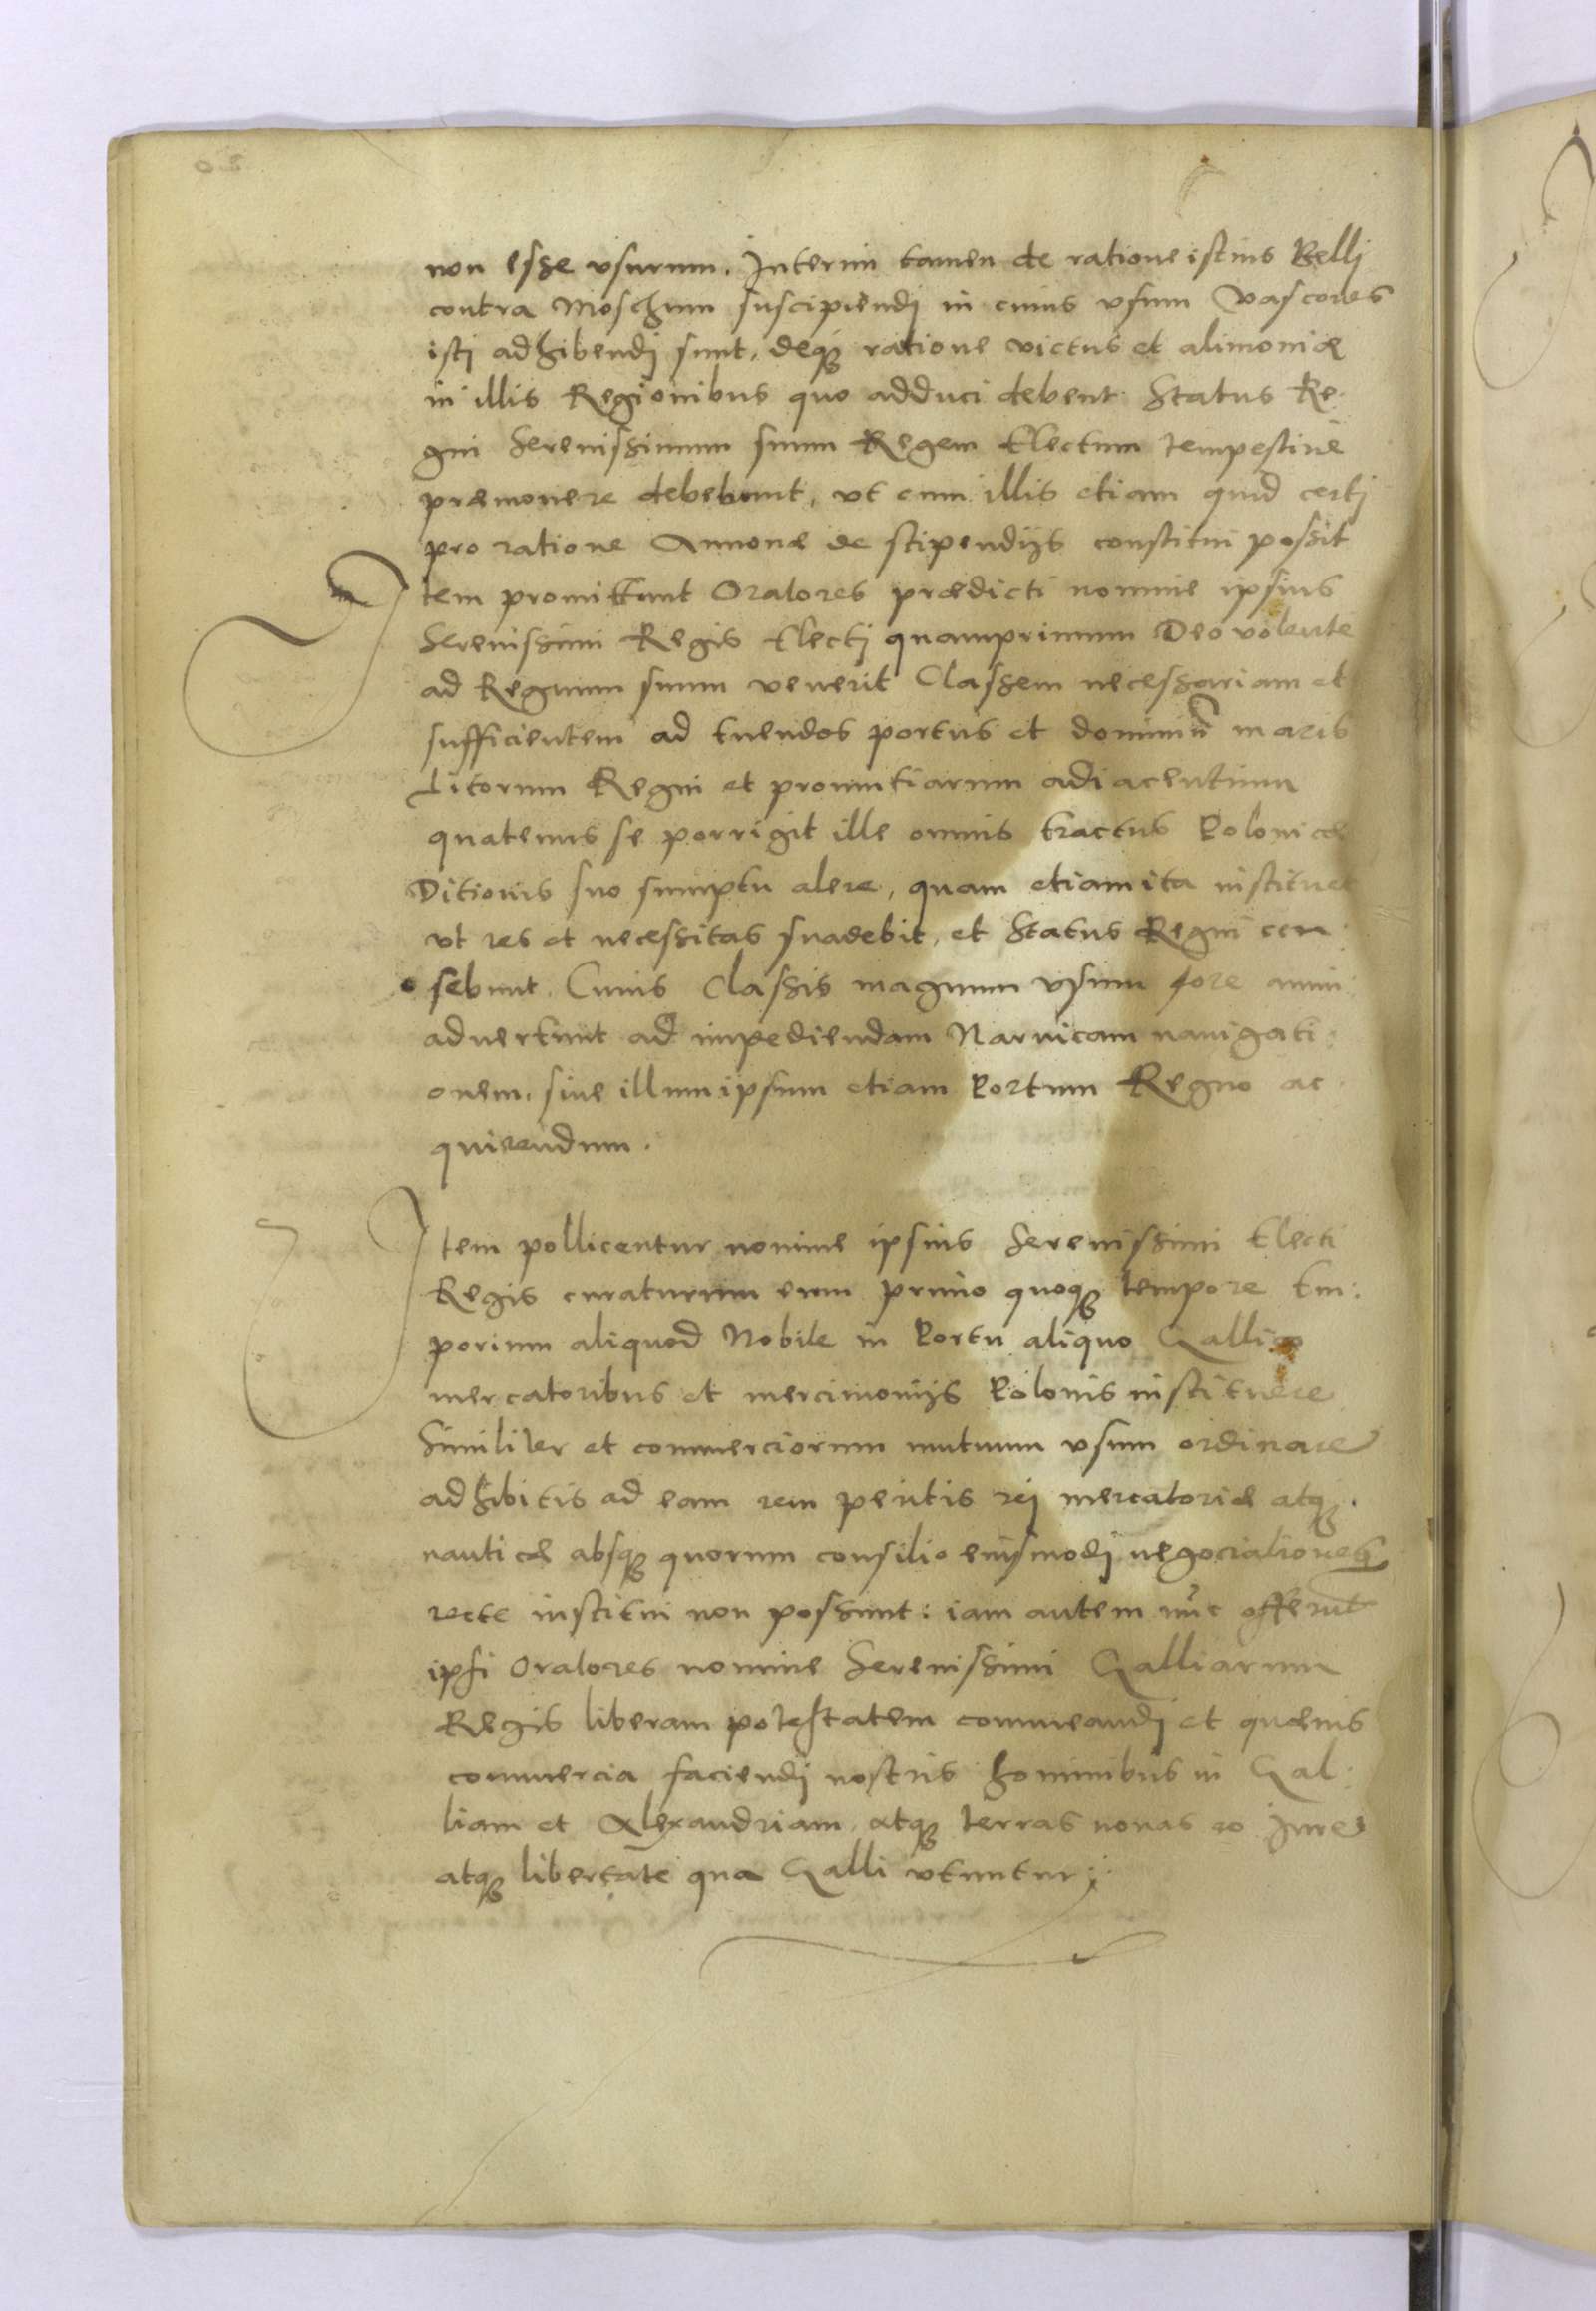 non esse vsurum. Interim tamen de ratione istius Belli
contra Moschum suscipiendj in cuius vsum Vascones
istj adhibendj sunt, deq; ratione victus et alimoniæ
in illis Regionibus quo adduci debent Status Re:
gni Serenissimum suum Regem Electum tempestiuè
præmonere debebunt, vt cum illis etiam quid certj
pro ratione Annonæ de stipendijs constitui possit
Item promittunt Oratores prædicti nomine ipsius
Serenissimi Regis Electj quamprimum Deo volente
ad Regnum suum venerit Classem necessariam et
sufficientem ad tuendos portus et dominiũ maris
Litorum Regni et prouintiarum adiacentium
quatenus se porrigit ille omnis tractus Polonicæ
Ditionis suo sumptu alere, quam etiam ita instituet
vt res et necessitas suadebit, et Status Regni cen:
sebunt. Cuius Classis magnum vsum fore anim:
aduertunt ad impediendam Naruicam nauigati:
onem, siue illum ipsum etiam Portum Regno ac:
quirendum.
Item pollicentur nomine ipsius Serenissimi Electi
Regis curaturum eum primo quoq; tempore Em:
porium aliquod Nobile in Portu aliquo Gallico
mercatoribus et mercimonijs Polonis instituere
Similiter et commerciorum mutuum vsum ordinare
adhibitis ad eam rem peritis rej mercatoriæ atq;
nauticæ absq; quorum consilio eiusmodj negociationes
recte institui non possunt: iam autem nũc offerũt
ipsi Oratores nomine Serenissimi Galliarum
Regis liberam potestatem commeandj et quæuis
commercia faciendj nostris hominibus in Gal:
liam et Alexandriam, atq; terras nouas eo Jure
atq; libertate qua Galli vtuntur: